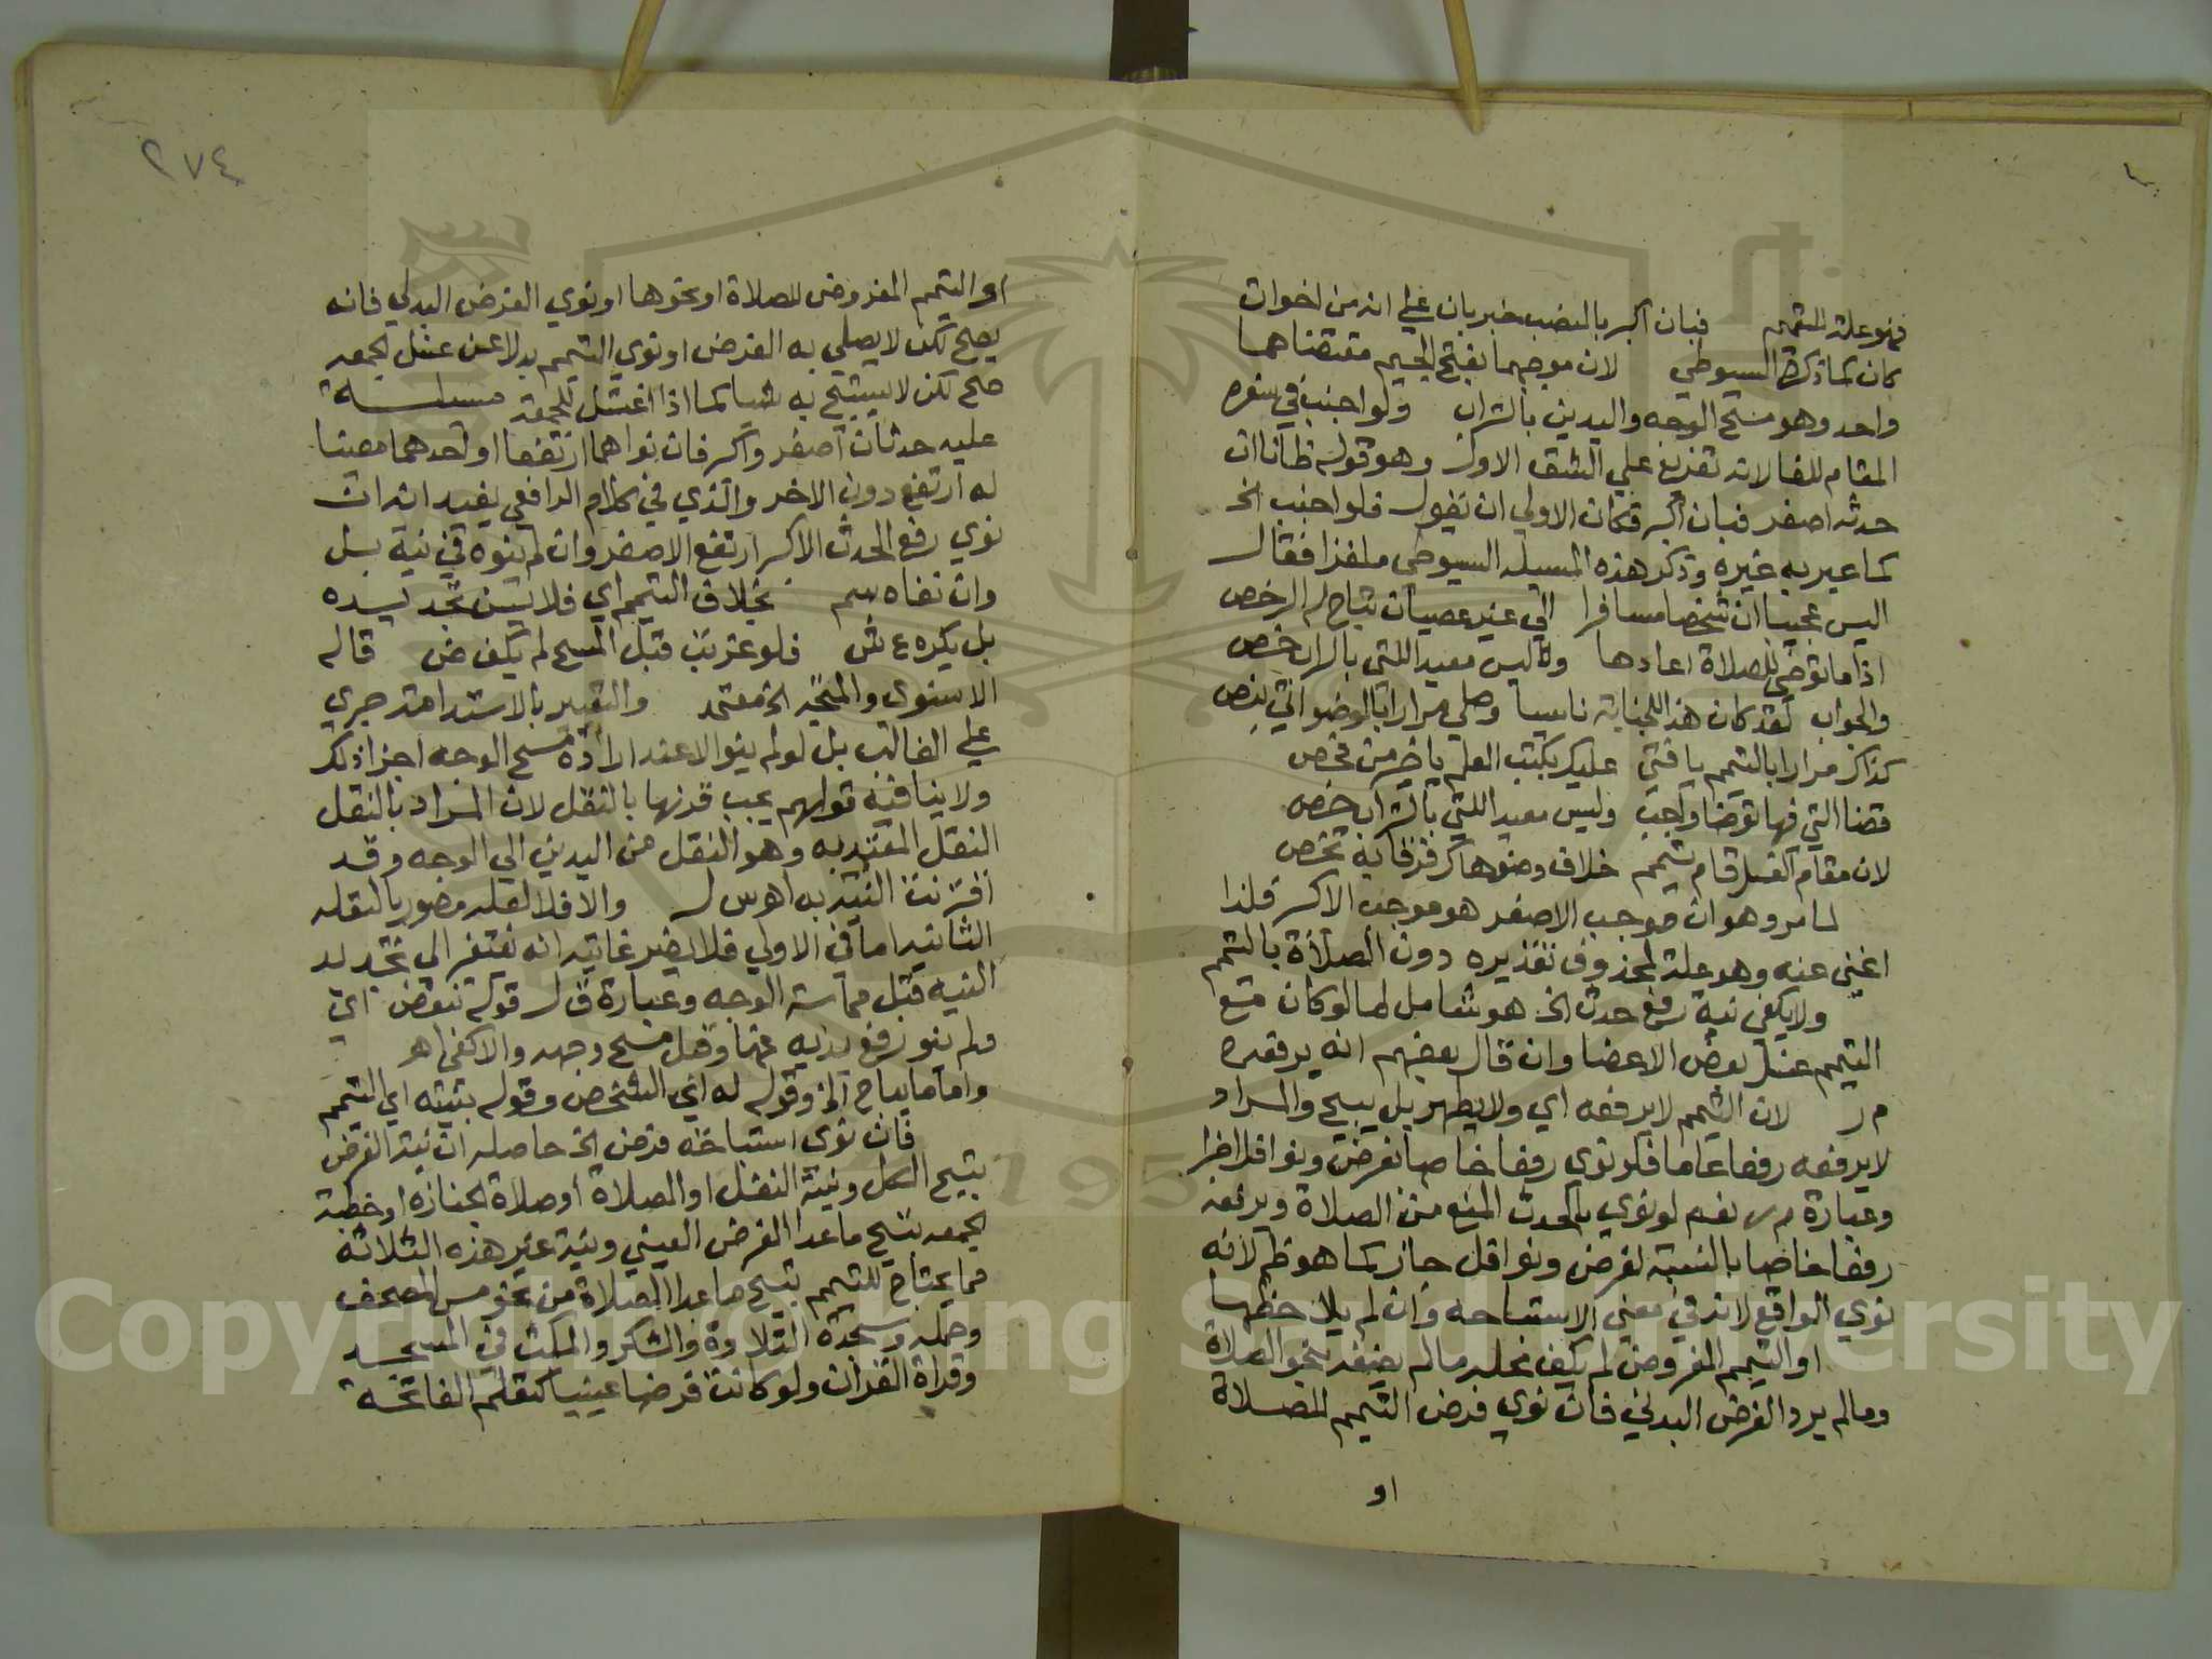 فهو علة للتيمم فبان اكبر بالنصب خبر بان علي انه من اخوات
كان كما ذكره السيوطي لان موجبهما بفتح الجيم مقتضاهما
واحد وهو مسح الوجه واليدين بالتراب ولو اجنب في سفره
المقام للفا لانه تفريع علي الشق الاول وهو قوله ظانا ان
حدثه اصغر فبان اكبر فكان الاولي ان يقول فلو اجنب الخ
كما عبر به غيره وذكر هذه المسيله السيوطي ملغزا فقال
اليس عجيبا ان شخصا مسافرا الي غير عصيان تباح له الرخص
اذا ما توضي للصلاة اعادها وليس معيد اللتي بالتراب خص
والجواب لقد كان هذا للجنابة ناسيا وصلي مرارا بالوضو اتي بنص
كذاك مرارا بالتيمم يا فتي عليك بكتب العلم يا خير من فحص
قضا التي فيها توضا واجب وليس معيد اللتي بالتراب خص
لان مقام الغسل قام تيمم خلاف وضو هاك فرقا به تخص
لما مر وهو ان موجب الاصغر هو موجب الاكبر فلذا
اغني عنه وهو علة لمحذوف تقديره دون الصلاة بالتيمم
ولا يكفي نية رفع حدث الخ هو شامل لما لو كان مع
التيمم غسل بعض الاعضا وان قال بعضهم انه يرفعه
م ر لان التيمم لا يرفعه اي ولا يطهر بل يبيح والمراد
لا يرفعه رفعا عاما فلو نوي رفعا خاصا بفرض ونوافل اجزا
وعبارة م ر نعم لو نوي بالحدث المنع من الصلاة وبرفعه
رفعا خاصا بالنسبة لفرض ونوافل جاز كما هو ظ لانه
نوي الواقع لانه في معني الاستباحه وان لم يلاحظها
او التيمم المفروض لم يكف محله ما لم يضفه لنحو الصلاة
وما لم يرد الفرض البدلي فان نوي فرض التيمم للصلاة
او
٢٧٤
او التيمم المفروض للصلاة او نحوها او نوي الفرض البدلي فانه
يصح لكن لا يصلي به الفرض او نوي التيمم بدلا عن غسل الجمعه
صح لكن لا يستبيح به شيا كما اذا اغتسل للجمعة مسيلة
عليه حدثان اصغر واكبر فان نواهما ارتفعا او احدهما معينا
له ارتفع دون الاخر والذي في كلام الرافعي يفيد انه ان
نوي رفع الحدث الاكبر ارتفع الاصغر وان لم ينوه في نية بل
وان نفاه سم بخلاف التيمم اي فلا يسن تجديده
بل يكره ع ش فلو عزبت قبل المسح لم يكف ض قاله
الاسنوي والمتجه الخ معتمد والتعبير بالاستدامة جري
علي الغالب بل لو لم ينو الا عند ارادة مسح الوجه اجزا ذلك
ولا ينافيه قولهم يجب قرنها بالنقل لان المراد بالنقل
النقل المعتد به وهو النقل من اليدين الي الوجه وقد
اقترنت النية به اه س ل والافلا لعله مصور بالنقله
الثانيه اما في الاولي فلا يضر غايته انه يفتقر الي تجديد
النيه قبل مماسة الوجه وعبارة ق ل قوله تنقض اي
ولم ينو رفع يديه عنها وقبل مسح وجهه والا كفي اه
واما ما يباح الخ وقوله له اي الشخص وقوله بنيته اي التيمم
فان نوي استباحة فرض الخ حاصله ان نية الفرض
تبيح الكل ونية النفل او الصلاة او صلاة الجنازة او خطبة
الجمعه تبيح ما عدا الفرض العيني ونية غير هذه الثلاثة
مما يحتاج للتيمم تبيح ما عدا الصلاة من نحو مس المصحف
وحمله وسجدة التلاوة والشكر والمكث في المسجد
وقراة القران ولو كانت فرضا عينيا كتعلم الفاتحة
Copyright © King Saud University
1957